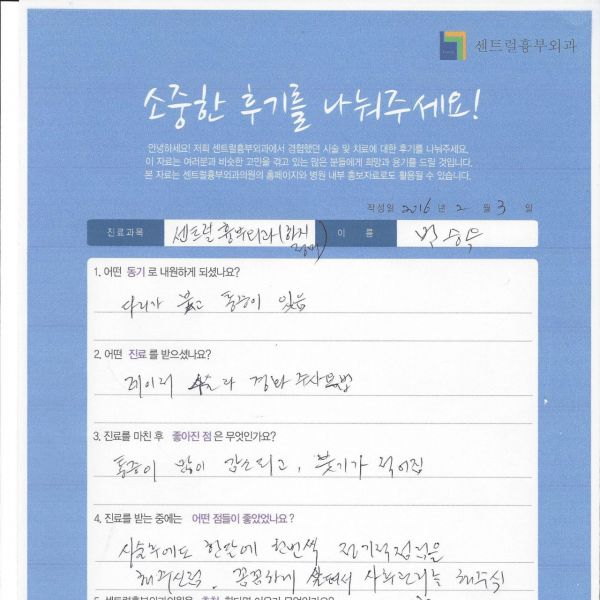 센트럴흉부외과
소중한 후기를 나눠주세요!
안녕하세요! 저희 센트럴흉부외과에서 경험했던 시술 및 치료에 대한 후기를 나눠주세요.
이 자료는 여러분과 비슷한 고민을 겪고 있는 많은 분들에게 희망과 용기를 드릴 것입니다.
본 자료는 센트럴흉부외과의원의 홈페이지와 병원 내부 홍보자료로도 활용될 수 있습니다.
작성일 2016 년 2 월 3 일
진료과목 센트럴흉부외과(하지정맥) 이 름
1. 어떤 동기로 내원하게 되셨나요?
다리가 붓고 통증이 있음
2. 어떤 진료를 받으셨나요?
레이저 수술과 경화 주사요법
3. 진료를 마친 후 좋아진 점은 무엇인가요?
통증이 많이 감소되고, 붓기가 적어짐
4. 진료를 받는 중에는 어떤 점들이 좋았었나요?
시술후에도 한달에 한번씩 정기적점검을
해주신점. 꼼꼼하게 살펴서 사후관리를 해주심